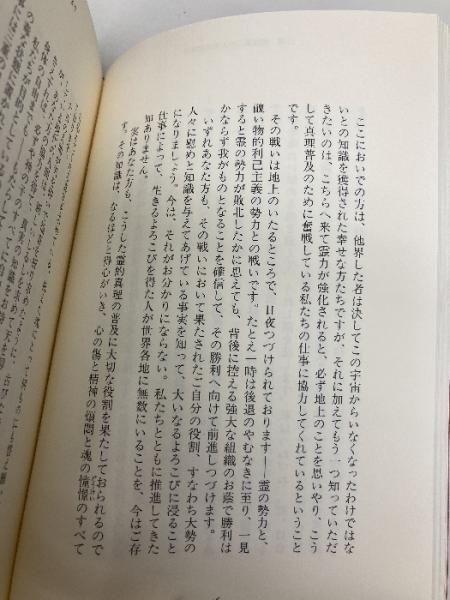 ここにおいでの方は、他界した者は決してこの宇宙からいなくなったわけではな
いとの知識を獲得された幸せな方たちですが、それに加えてもう一つ知っていただ
きたいのは、こちらへ来て霊力が強化されると、必ず地上のことを思いやり、こう
して真理普及のために奮戦している私たちの仕事に協力してくれているということ
です。
その戦いは地上のいたるところで、日夜つづけられております——霊の勢力と、
醜い物的利己主義の勢力との戦いです。たとえ一時は後退のやむなきに至り、一見
すると霊の勢力が敗北したかに思えても、背後に控える強大な組織のお蔭で勝利は
かならず我がものとなることを確信して、その勝利へ向けて前進しつづけます。
いずれあなた方も、その戦いにおいて果たされたご自分の役割、すなわち大勢の
人々に慰めと知識を与えてあげている事実を知って、大いなるよろこびに浸ること
になりましょう。今は、それがお分かりにならない。私たちとともに推進してきた
仕事によって、生きるよろこびを得た人が世界各地に無数にいることを、今はご存
知ありません。
実はあなた方も、こうした霊的真理の普及に大切な役割を果たしておられるので
す。その知識は、なるほどと得心がいき、心の傷と精神の煩悶と魂の憧憬のすべて